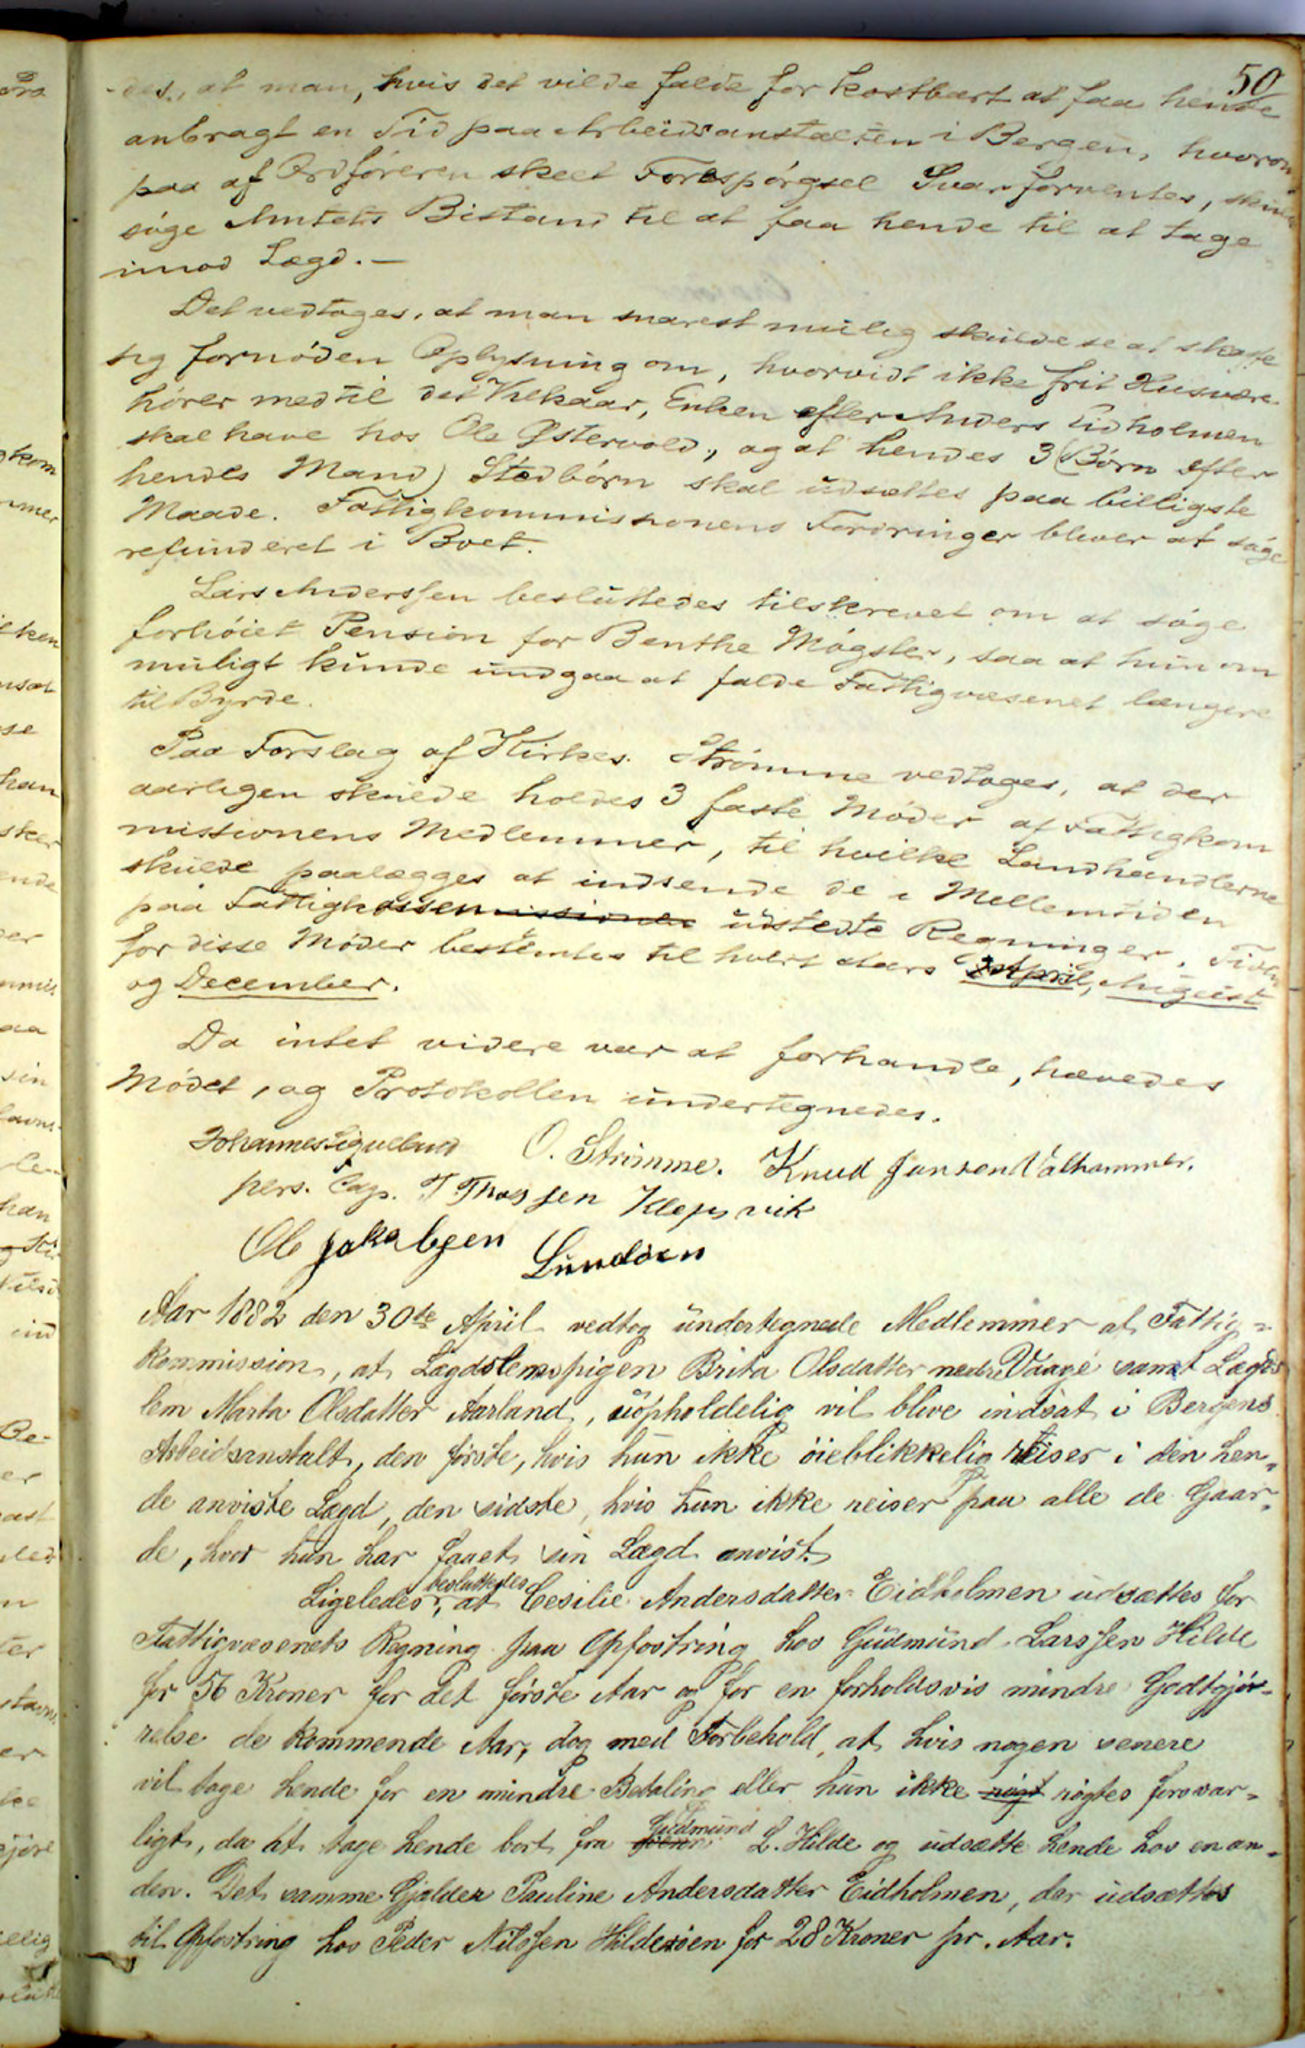 50
-des, at man, hvis det vilde falde for kostbart at faa hende
anbragt en Tid paa Arbeidsanstalten i Bergen, hvorom
paa af Ordføreren skeet Forespørgsel Svar forventes, skulde
søge Amtets Bistand til at faa hende til at tage
imod Lægd. —
Det vedtoges, at man snarest mulig skulde se at skaffe
sig fornøden Oplysning om, hvorvidt ikke frit Husvære
hører med til det Vilkaar, Enken efter Anders Eidholmen
skal have hos Ole Østervold, og at hendes 3 (Børn efter
hendes Mand) Stedbørn skal udsættes paa billigste
Maade. Fattigkommissionens Fordringer bliver at søge
refunderet i Boet.
Lars Anderssen besluttedes tilskrevet om at søge
forhøiet Pension for Benthe Møgster, saa at hun om
muligt kunde undgaa at falde Fattigvæsenet længere
til Byrde.
Paa Forslag af Kirkes. Strømme vedtoges, at der
aarligen skulde holdes 3 faste Møder af Fattigkom
missionens Medlemmer, til hvilke Landhandlerne
skulde paalægges at indsende de i Mellemtiden
paa Fattigkassen udstedte Regninger. Tiden
for disse Møder bestemtes til hvert Aars April, August
og December.
Da intet videre var at forhandle, hævedes
Mødet, og Protokollen undertegnedes.
Johannes O. Strømme. Knud Jansen Valhammer.
pers. Cap. T Thossen Klepsvik
Ole Jakobsen Lundøen
Aar 1882 den 30te April vedtog undertegnede Medlemmer af Fattig-
kommission, at Lægdslemspigen Brita Olsdatter nedre Vaage samt Lægds
lem Marta Olsdatter Aarland, uopholdelig vil blive indsat i Bergens
Arbeidsanstalt, den første, hvis hun ikke øieblikkelig reiser i den hen-
de anviste Lægd, den sidste, hvis hun ikke reiser paa alle de Gaar-
de, hvor hun har faaet sin Lægd anvist.
Ligeledes besluttedes, at Cesilie Andersdatter Eidholmen udsættes for
Fattigvæsenets Regning paa Opfostring hos Gudmund Larssen Hilde
for 56 Kroner for det første Aar og for en forholdsvis mindre Godtgjø-
relse de kommende Aar, dog med Forbehold, at hvis nogen senere
vil tage hende for en mindre Betaling eller hun ikke røgt røgtes forsvar-
ligt, da at tage hende bort fra Gudmund L. Hilde og udsætte hende hos en an-
den. Det samme Gjælder Pauline Andersdatter Eidholmen, der udsættes
til Opfostring hos Peder Nilssen Hilderøen for 28 Kroner pr. Aar.